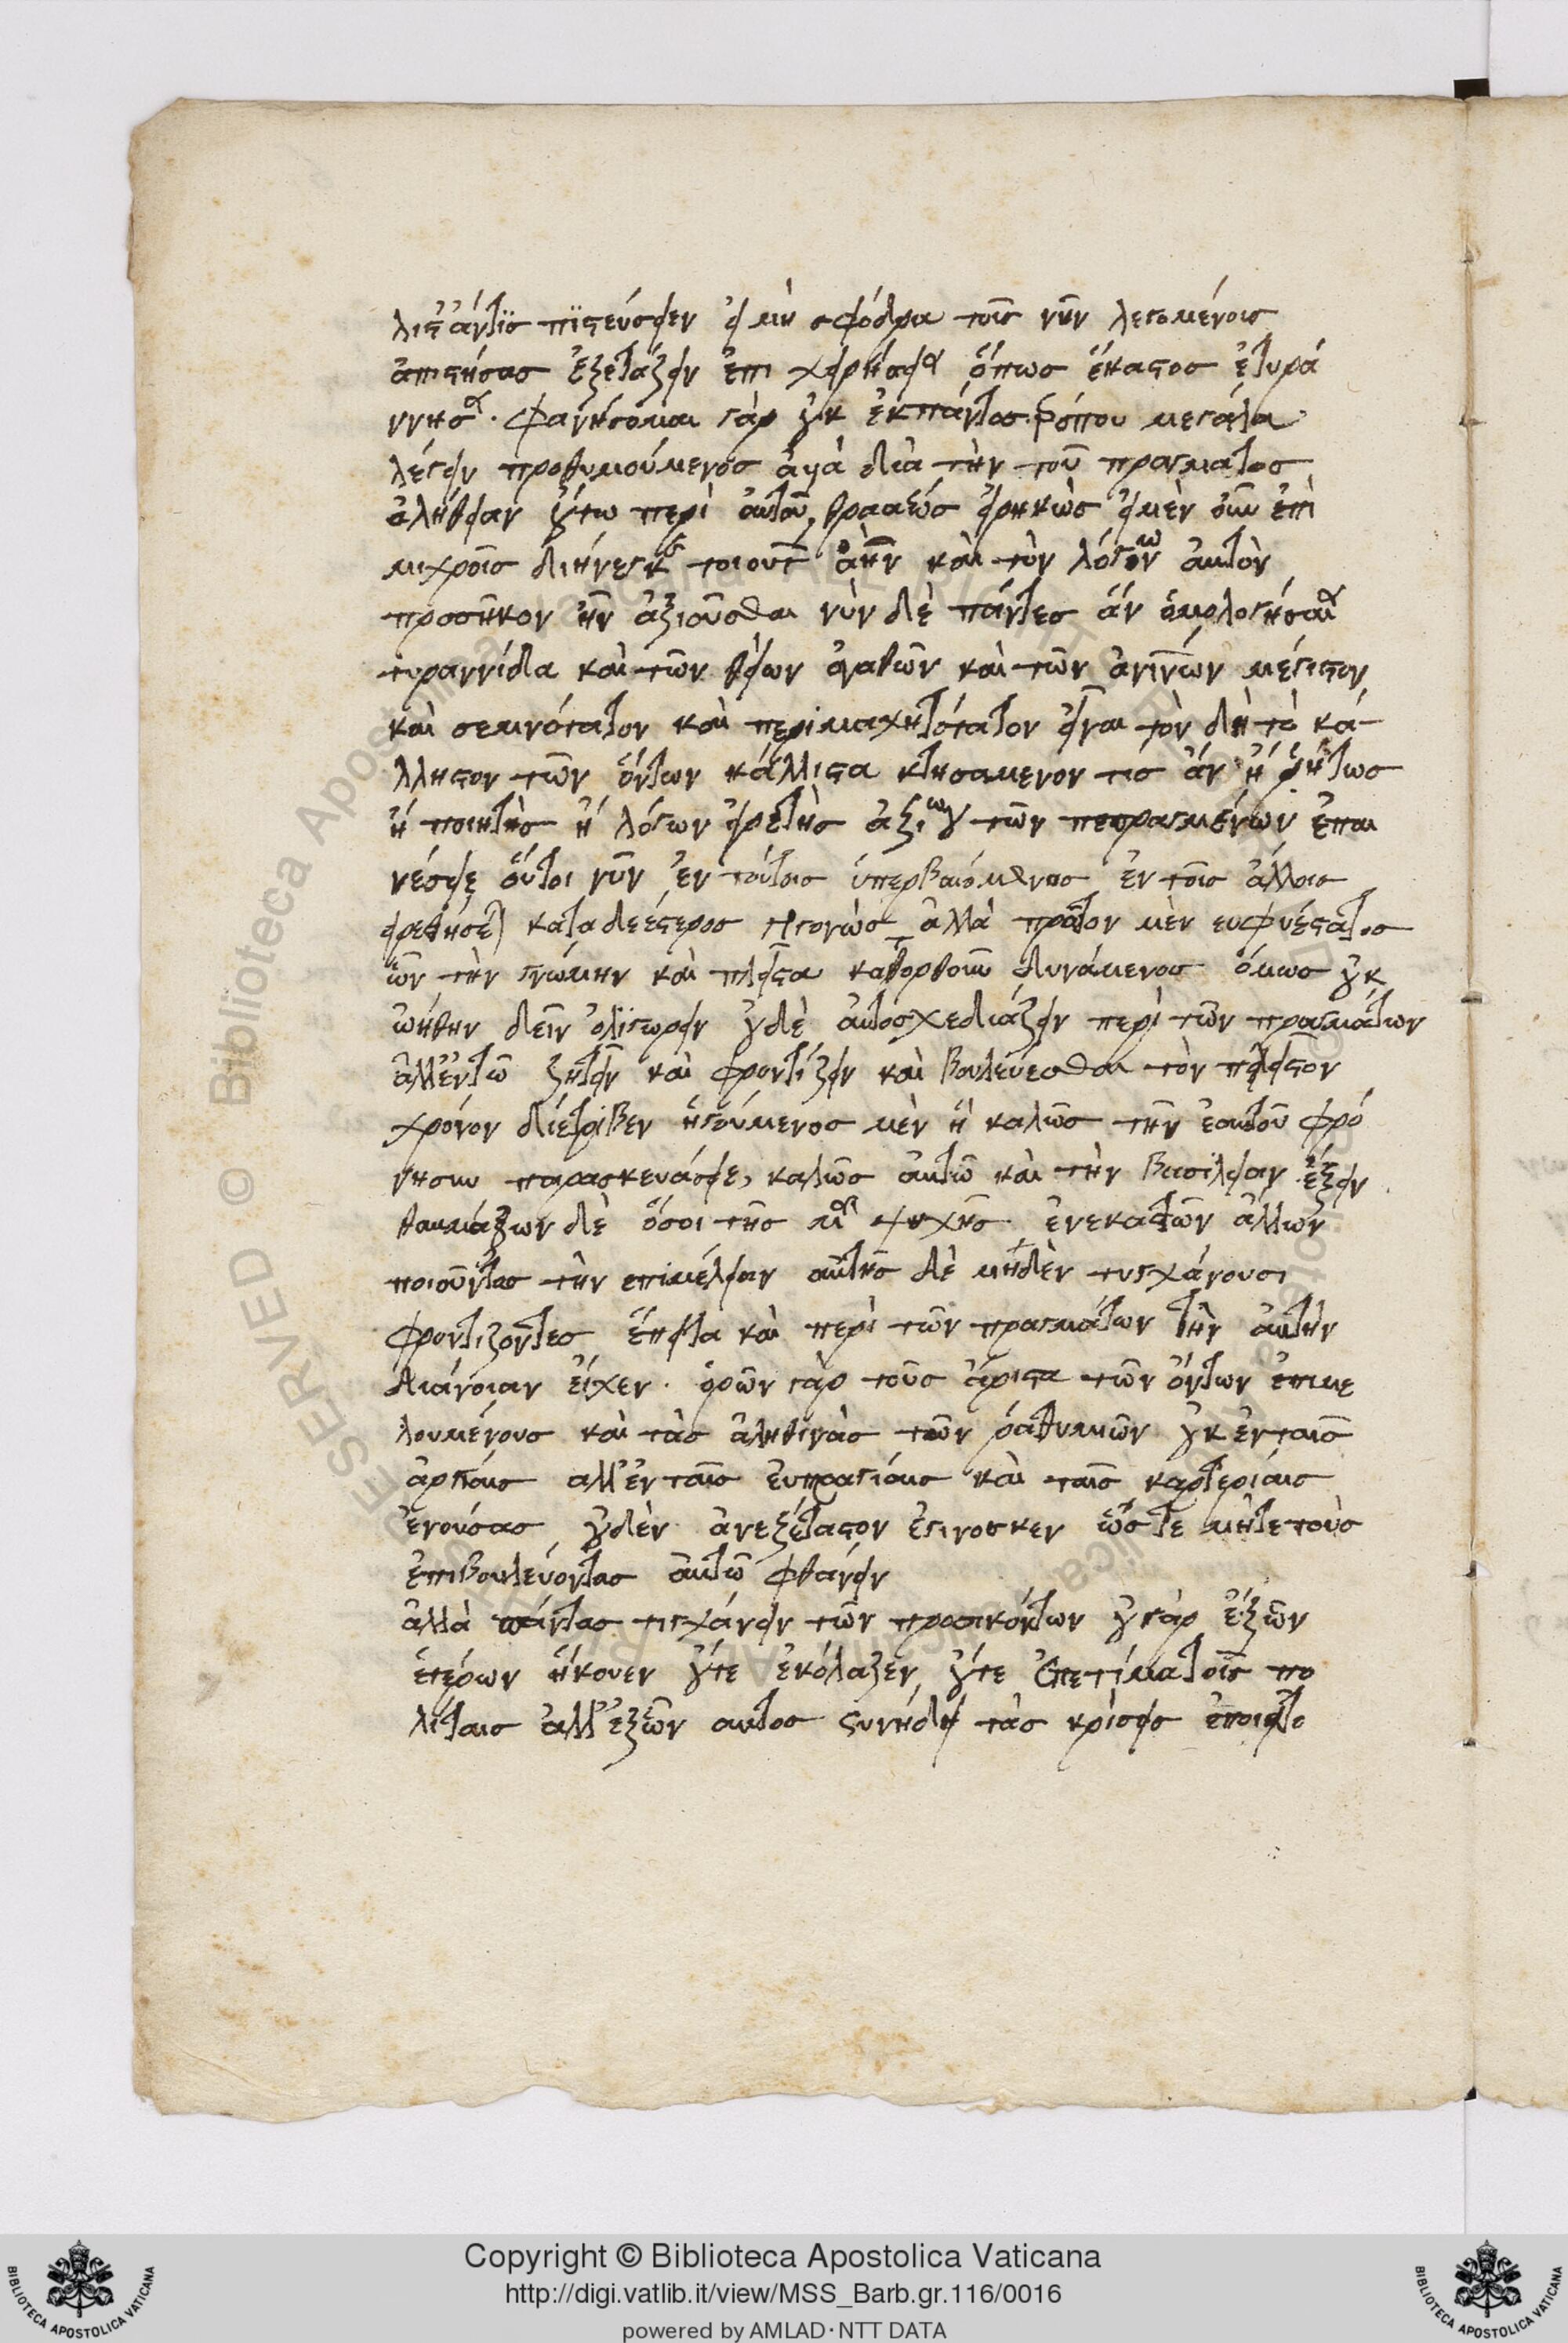 λιστ' ἄν τις πιστεύσειεν εἰ μὴ σφόδρα τοῖς νῦν λεγομένοις
ἀπιστήσας ἐξετάζειν ἐπιχειρήσαι ὅπως ἕκαστος ἐτυρά
ννησε. Φανήσομαι γὰρ οὐκ ἐκ παντὸς τρόπου μεγάλα
λέγειν προθυμούμενος ἀλλὰ διὰ τὴν τοῦ πράγματος
ἀλήθειαν οὕτω περὶ αὐτοῦ θρασέως εἰρηκὼς εἰ μὲν οὖν ἐπὶ
μικροῖς διήνεγκε τοιούτων ἂν ἦν καὶ τὸν λόγον αὐτὸν
προσῆκον ἦν ἀξιοῦσθαι νῦν δὲ πάντες ἂν ὁμολογήσαιεν
τυραννίδα καὶ τῶν θείων ἀγαθῶν καὶ τῶν ἀνθρωπίνων μέγιστον
καὶ σεμνότατον καὶ περιμαχητότατον εἶναι τὸν δὴ τὸ κά-
λλιστον τῶν ὄντων κάλλιστα κτησάμενον τίς ἂν ἢ ῥήτωρ
ἢ ποιητὴς ἢ λόγων εὑρετὴς ἀξίως τῶν πεπραγμένων ἐπαι
νέσειε οὔτοι νῦν ἐν τούτοις ὑπερβαλόμενος ἐν τοῖς ἄλλοις
εὑρεθήσεται καταδεέστερος γεγονὼς ἀλλὰ πρῶτον μὲν εὐφυέστατος
ὢν τὴν γνώμην καὶ πλεῖστα κατορθοῦν δυνάμενος ὅμως οὐκ
ᾠήθη δεῖν ὀλιγωρεῖν οὐδὲ αὐτοσχεδιάζειν περὶ τῶν πραγμάτων
ἀλλ' ἐν τῷ ζητεῖν καὶ φροντίζειν καὶ βουλεύεσθαι τὸν πλεῖστον
χρόνον διέτριβεν ἡγούμενος μὲν εἰ καλῶς τὴν ἑαυτοῦ φρό
νησιν παρασκευάσειε, καλῶς αὐτῷ καὶ τὴν βασιλείαν ἕξειν
θαυμάζων δὲ ὅσοι τῆς μὲν ψυχῆς ἕνεκα τῶν ἄλλων
ποιοῦνται τὴν ἐπιμέλειαν αὐτῆς δὲ μηδὲν τυγχάνουσι
φροντίζοντες ἔπειτα καὶ περὶ τῶν πραγμάτων τὴν αὐτὴν
διάνοιαν εἶχεν. ὁρῶν γὰρ τοὺς ἄριστα τῶν ὄντων ἐπιμε
λουμένους καὶ τὰς ἀληθινὰς τῶν ῥᾳθυμιῶν οὐκ ἐν ταῖς
ἀργίαις ἀλλ' ἐν ταῖς εὐπραγίαις καὶ ταῖς καρτερίαις
ἐνούσας οὐδὲν ἀνεξέταστον ἐγίνοσκεν ὥστε μήτε τοὺς
ἐπιβουλεύοντας αὐτῷ φθάνειν
ἀλλὰ πάντας τυγχάνειν τῶν προσηκόντων οὐ γὰρ ἐξ ὧν
ἑτέρων ἤκουεν οὔτε ἐκόλαζεν οὔτε ἐπετίμα τοῖς πο
λίταις ἀλλ' ἐξ ὧν αὐτὸς συνῄδει τὰς κρίσεις ἐποιεῖτο
Copyright © Biblioteca Apostolica Vaticana
http://digi.vatlib.it/view/MSS_Barb.gr.116/0016
powered by AMLAD · NTT DATA